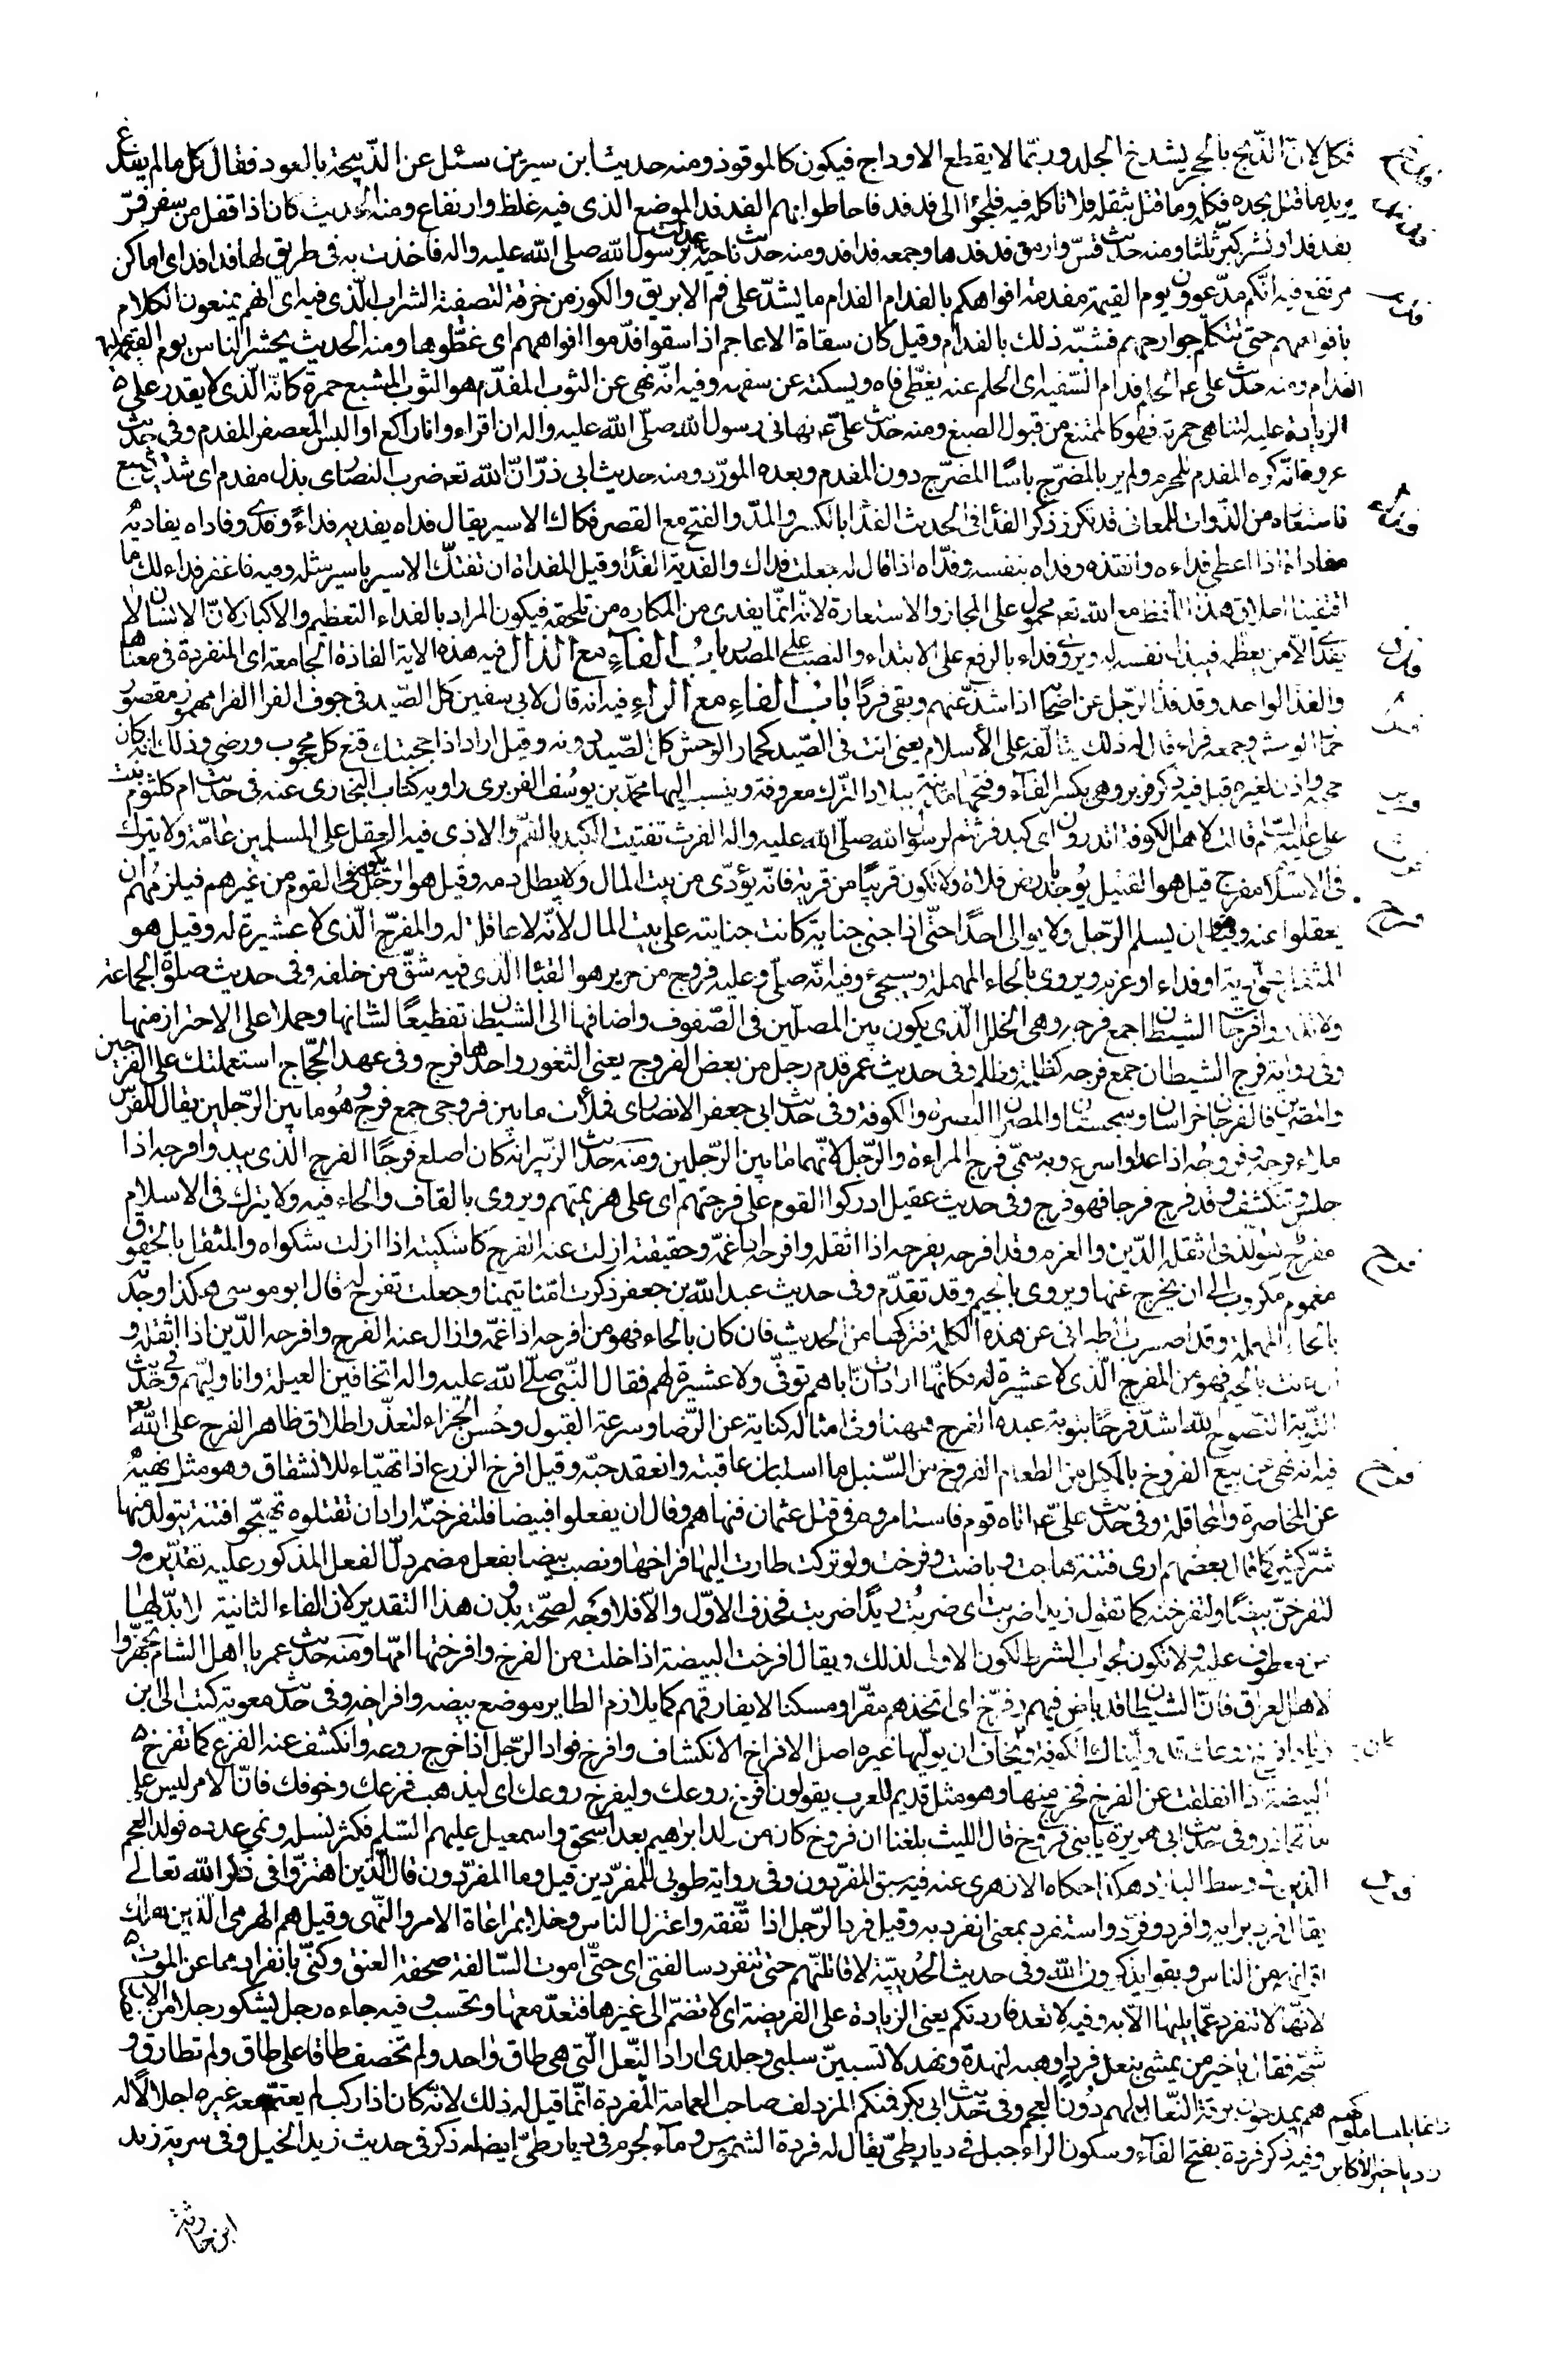 فكل لان الذبح بالحجر يشدخ الجلد وربما لا يقطع الاوداج فيكون كالموقوذ ومنه حديث ابن سيرين سئل عن الذبيحة بالعود فقال كل ما لم يفدغ
يريد ما قتل بحده فكله وما قتل بثقله فلا تاكله فيه فلجؤا الى فدفد فاحاطوا بهم الفدفد الموضع الذى فيه غلظ وارتفاع ومنه الحديث كان اذا قفل من سفر فمرّ
بفدفد او نشز كبر ثلثا ومنه حديث قس وارمق فدفدها وجمعه فدافد ومنه حديث ناجية عدلت برسول الله صلى الله عليه واله فاخذت به فى طريق لها فدافد اى اماكن
مرتفعة فيه انكم مدعوون يوم القيمة مفدمة افواهكم بالفدام الفدام ما يشد على فم الابريق والكوز من خرقة لتصفية الشراب الذى فيه اى انهم يمنعون الكلام
بافواههم حتى تتكلم جوارحهم فشبه ذلك بالفدام وقيل كان سقاة الاعاجم اذا سقوا فدموا افواههم اى غطوها ومنه الحديث يحشر الناس يوم القيمة عليهم
الفدام ومنه حديث على ع الحلم فدام السفيه اى الحلم عنه يغطى فاه ويسكته عن سفهه وفيه انه نهى عن الثوب المفدم هو الثوب المشبع حمرة كانه الذى لا يقدر على
الزيادة عليه لتناهى حمرته فهو كالممتنع من قبول الصبغ ومنه حديث على ع نهانى رسول الله صلى الله عليه واله ان اقراء وانا راكع او البس المعصفر المفدم وفى حديث
عروة انه كره المفدم للمحرم ولم ير بالمضرج باسًا المضرج دون المفدم وبعده المورّد ومنه حديث ابى ذر ان الله تعه ضرب النصارى بذل مفدم اى شديد مشبع
فاستعاره من الذوات للمعانى قد تكرر ذكر الفداء فى الحديث الفداء بالكسر والمد والفتح مع القصر فكاك الاسير يقال فداه يفديه فداءً وفدى وفاداه يفاديه
مفاداة اذا اعطى فداءه وانقذه وفداه بنفسه وفدّاه اذا قال له جعلت فداك والفدية الفداء وقيل المفداة ان تفتك الاسير باسير مثله وفيه فاغفر فداء لك ما
اقتفينا اطلاق هذا اللفظ مع الله تعه محمول على المجاز والاستعارة لانه انما يفدى من المكاره من تلحقه فيكون المراد بالفداء التعظيم والاكبار لان الانسان لا
يفدى الا من يعظمه فيبذل نفسه له ويروى فداء بالرفع على الابتداء والنصب على المصدر باب الفاء مع الذال فيه هذه الاية الفاذة الجامعة اى المنفردة فى معناها
والفذ الواحد وقد فذ الرجل عن اصحابه اذا شذ عنهم وبقى فردًا باب الفاء مع الراء فيه انه قال لابى سفين كل الصيد فى جوف الفرا الفرا مهموز مقصور
حمار الوحش وجمعه فراء قال له ذلك يتألفه على الأسلام يعنى انت فى الصيد كحمار الوحش كل الصيد دونه وقيل اراد اذا حجبتك قنع كل محجوب ورضى وذلك انه كان
حجبه واذن لغيره قبله فيه ذكر فربر وهى بكسر الفاء وفتحها مدينة ببلاد الترك معروفة وينسب اليها محمد بن يوسف الفربرى راويه كتاب البخارى عنه فى حديث ام كلثوم بنت
على عليه السلام قالت لاهل الكوفة اتدرون اى كبد فرثتم لرسول الله صلى الله عليه واله الفرث تفتيت الكبد بالغم والاذى فيه العقل على المسلمين عامة ولا يترك
فى الاسلام مفرج قيل هو القتيل يوجد بارض فلاة ولا تكون قريبًا من قرية فانه يؤدّى من بيت المال ولا يبطل دمه وقيل هو الرجل يكون فى القوم من غيرهم فيلزمهم ان
يعقلوا عنه وقيل هو ان يسلم الرجل ولا يوالى احدًا حتى اذا جنى جناية كانت جنايته على بيت المال لانه لا عاقلة له والمفرج الذى لا عشيرة له وقيل هو
المثقل بحق دية او فداء او غرم ويروى بالحاء المهملة وسيجئ وفيه انه صلى وعليه فروج من حرير هو القباء الذى فيه شق من خلفه وفى حديث صلوة الجماعة
ولا تذروا فرجات الشيطان جمع فرجه وهى الخلل الذى يكون بين المصلين فى الصفوف واضافها الى الشيطان تفظيعًا لشانها وحملا على الاحتراز منها
وفى رواية فرج الشيطان جمع فرجه كظلمة وظلم وفى حديث عمر قدم رجل من بعض الفروج يعنى الثغور واحدها فرج وفى عهد الحجاج استعملتك على الفرجين
والمصرين فالفرجان خراسان وسجستان والمصران البصرة والكوفة وفى حديث ابى جعفر الانصارى فملأت ما بين فروجى جمع فرج وهو ما بين الرجلين يقال للفرس
ملاء فرجه وفروجه اذا عدا واسرع وبه سمّى فرج المراءة والرجل لانهما ما بين الرجلين ومنه حديث الزبير انه كان اصلع فرجًا الفرج الذى يبدو فرجه اذا
جلس وتنكشف وقد فرج فرجا فهو فرج وفى حديث عقيل ادركوا القوم على فرجتهم اى على هزيمتهم ويروى بالقاف والحاء فيه ولا يترك فى الاسلام
مفرح هو الذى اثقله الدّين والغرم وقد افرحه يفرحه اذا اثقله وافرحه اذا غمه وحقيقته ازلت عنه الفرح كاشكيته اذا ازلت شكواه والمثقل بالحقوق
مغموم مكروب الى ان يخرج عنها ويروى بالجيم وقد تقدم وفى حديث عبد الله بن جعفر ذكرت امّنا يتمنا وجعلت تفرح له قال ابو موسى هكذا وجدته
بالحاء المهملة وقد اضرب الطبرانى عن هذه الكلمة فتركها من الحديث فان كان بالحاء فهو من افرحه اذا غمه وازال عنه الفرح وافرحه الدّين اذا اثقله و
ان كانت بالجيم فهو من المفرج الذى لا عشيرة له فكانها ارادت ان اباهم توفى ولا عشيرة لهم فقال النبى صلى الله عليه واله اتخافين العيلة وانا وليهم وفى حديث
التوبة النصوح لله اشد فرحًا بتوبة عبده الفرح ههنا وفى امثاله كناية عن الرضا وسرعة القبول وحسن الجزاء لتعذر اطلاق ظاهر الفرح على الله تعه
فيه انه نهى عن بيع الفروخ بالمكيل من الطعام الفروخ من السنبل ما استبان عاقبته وانعقد حبه وقيل افرخ الزرع اذا تهيّاء للانشقاق وهو مثل نهيه
عن المخاضرة والمحاقلة وفى حديث على ع اتاه قوم فاستامروه فى قتل عثمان فنهاهم وقال ان يفعلوا فبيضا فلتفرخنه اراد ان تقتلوه تهيجوا فتنة يتولد منها
شر كثير كما قال بعضهم ارى فتنة هاجت وباضت وفرخت ولو تركت طارت اليها فراخها ونصب بيضا بفعل مضمر دل الفعل المذكور عليه تقديره و
لتفرخن بيضًا ولتفرخنه كما تقول زيدا ضربت اى ضربت زيدًا ضربت فحذف الاول والّا فلا وجه لصحّته بدون هذا التقدير لان الفاء الثانية لا بد لها
من معطوف عليه ولا تكون لجواب الشرط لكون الاولى لذلك ويقال افرخت البيضة اذا خلت من الفرخ وافرختها امها ومنه حديث عمر يا اهل الشام تجهزوا
لاهل العراق فان الشيطان قد باض فيهم وفرّخ اى اتخذهم مقرّا ومسكنا لا يفارقهم كما يلازم الطاير موضع بيضه وافراخه وفى حديث معوية كتب الى ابن
زياد افرخ روعك قد وليناك الكوفة وكان يخاف ان يوليها غيره اصل الافراخ الانكشاف وافرخ فواد الرجل اذا خرج روعه وانكشف عنه الفزع كما تفرخ
البيضة اذا انفلقت عن الفرخ فخرج منها وهو مثل قديم للعرب يقولون افرخ روعك وليفرخ روعك اى ليذهب فزعك وخوفك فانّ الامر ليس على
ما تحاذر وفى حديث ابى هريرة يا بنى فروخ قال الليث بلغنا ان فروخ كان من ولد ابراهيم بعد اسحق واسمعيل عليهم السلم فكثر نسله ونمى عدده فولد العجم
الذين فى وسط البلاد هكذا حكاه الازهرى عنه فيه سبق المفردون وفى رواية طوبى للمفردين قيل وما المفردون قال الذين اهتزوا فى ذكر الله تعالى
يقال فرد برايه وافرد وفرّد واستفرد بمعنى انفرد به وقيل فرد الرجل اذا تفقه واعتزل الناس وخلا بمراعاة الامر والنهى وقيل هم الهرمى الذين هلك
اقرانهم من الناس وبقوا يذكرون الله وفى حديث الحديبية لاقاتلنهم حتى تنفرد سالفتى اى حتى اموت السالفة صحفة العنق وكنى بانفرادهما عن الموت
لانها لا تنفرد عما يليها الّا به وفيه لا تعد فاردتكم يعنى الزيادة على الفريضة اى لا تضم الى غيرها فتعد معها وتحسب وفيه جاءه رجل يشكو رجلا من الانصار
شجه فقال يا خير من يمشى بنعل فرد اوهبه لنهدة ونهد لا تسبين سلبى وجلدى اراد النعل التى هى طاق واحد ولم تخصف طاقا على طاق ولم تطارق و
هم يمدحون برقة النعال وانما يلبسها ملوكهم دون العجم وفى حديث ابى بكر فمنكم المزدلف صاحب العمامة المفردة انما قيل له ذلك لانه كان اذا ركب لم يعتم معه غيره اجلالًا له
وفيه ذكر فردة بفتح الفاء وسكون الراء جبل فى ديار طىّ يقال له فردة الشموس وماء لجرم فى ديار طىّ ايضا له ذكر فى حديث زيد الخيل وفى سرية زيد
ابن حارثة